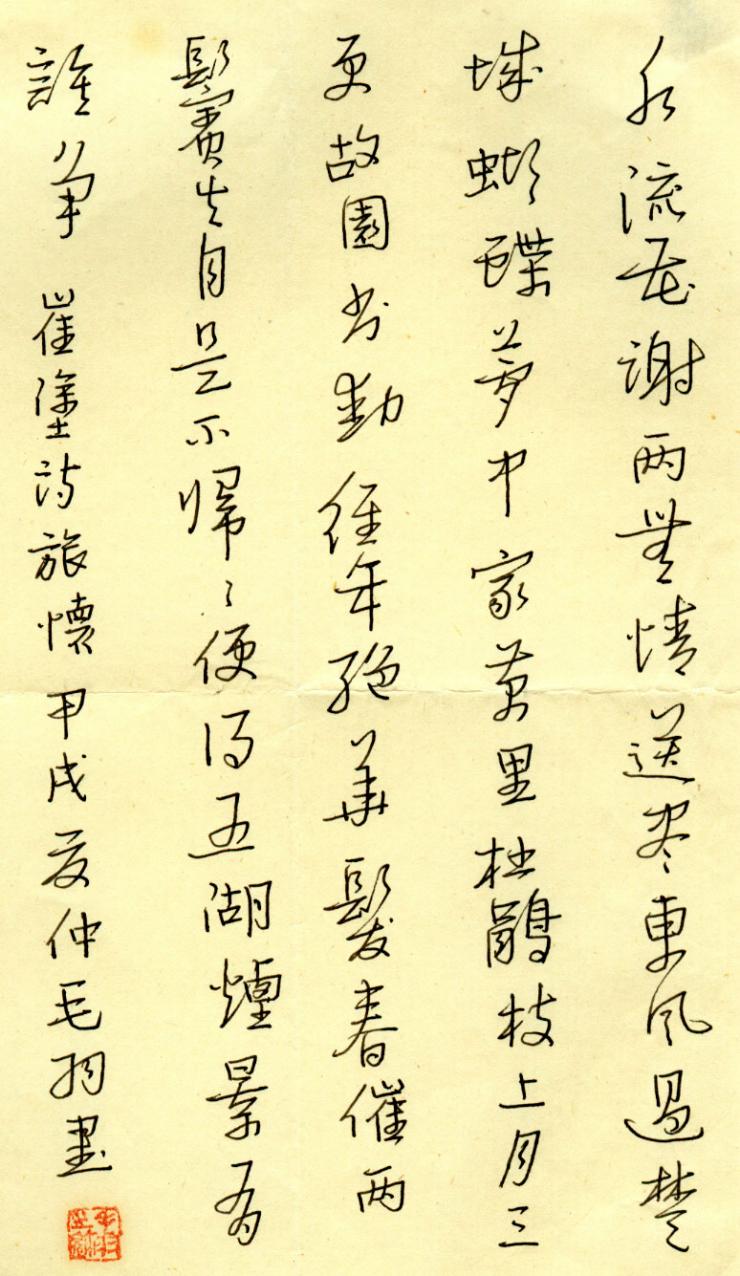 水流花謝两無情送尽東風過楚
城蝴蝶夢中家萬里杜鵑枝上月三
更故園书動經年絕華髮春催两
鬢生自是不歸々便得五湖煙景有
誰争 崔塗詩旅懷甲戌夏仲毛羽書